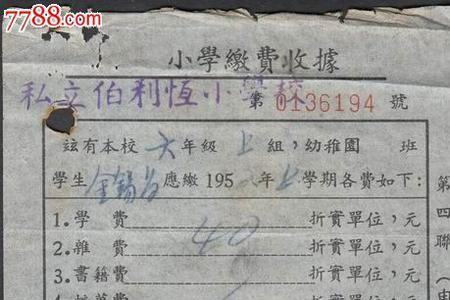 7788.com
小學繳費收據
私立伯利恆小學校
第 0136194 號
茲有本校六年級上組,幼稚園 班
學生 應繳195 年上學期各費如下:
1.學費 折實單位,元
2.雜費 40 折實單位,元
3.書籍費 折實單位,元
第四聯